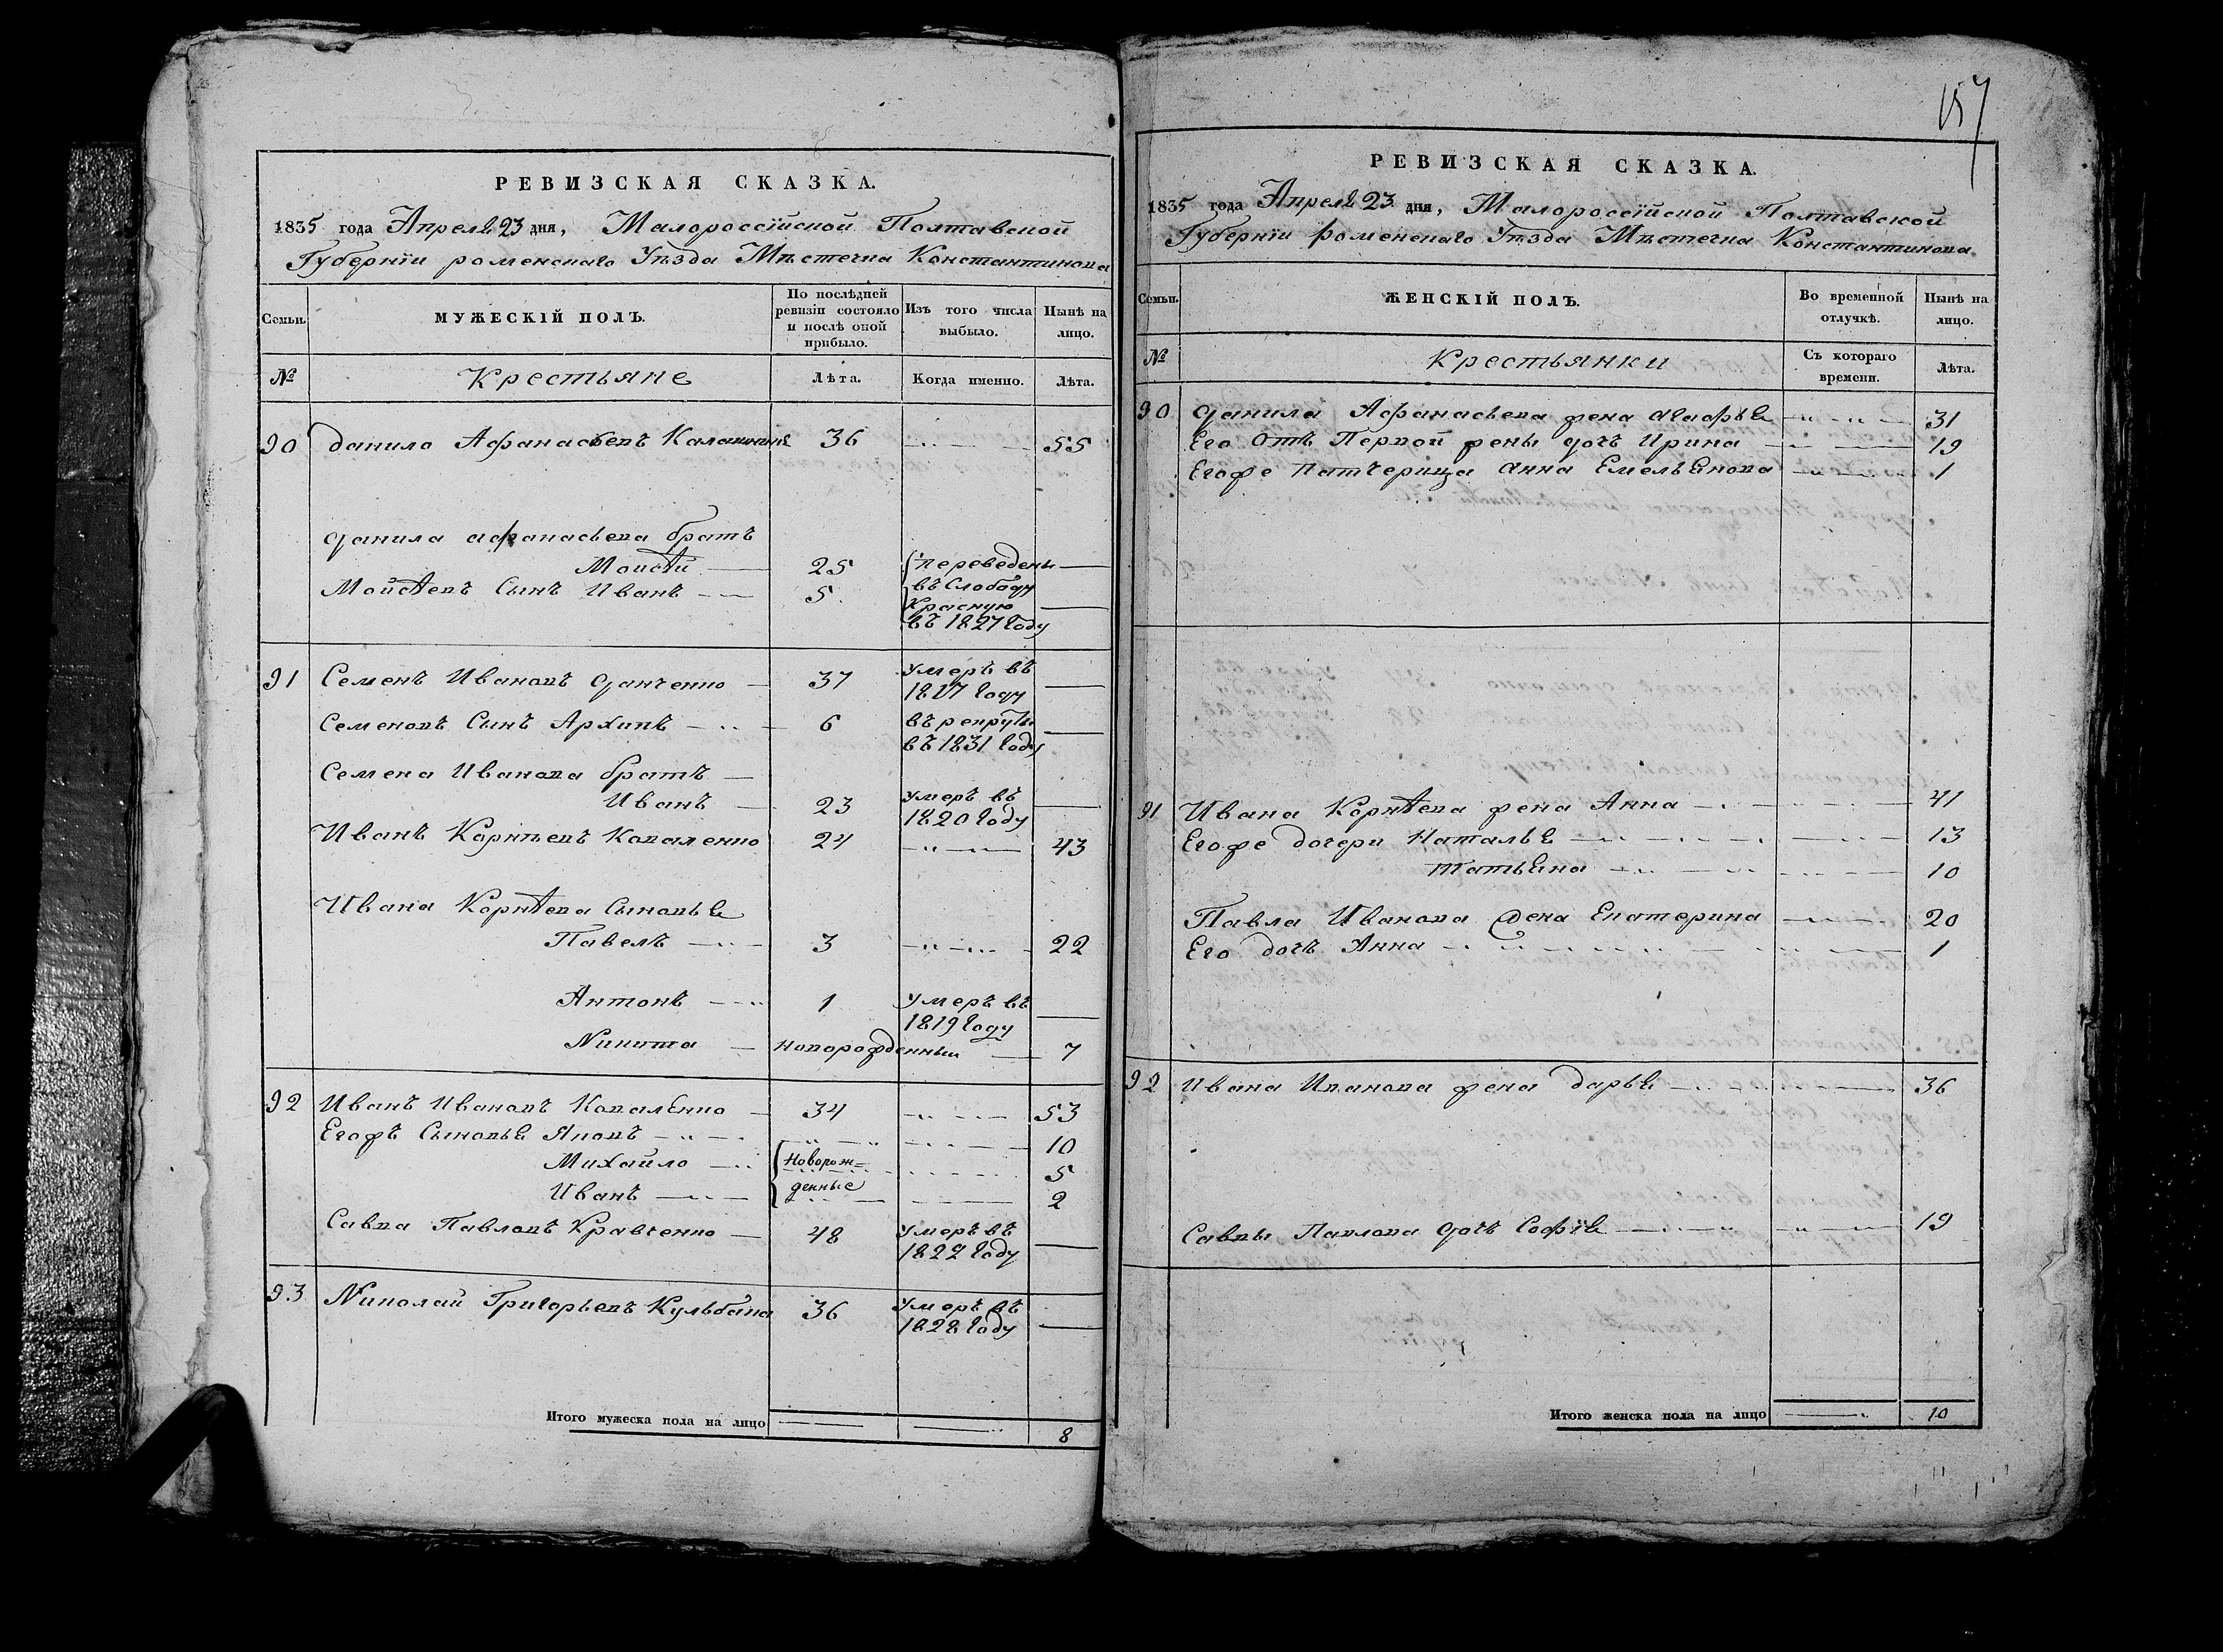 РЕВИЗСКАЯ СКАЗКА.
1835 года Апреля 23 дня, Малороссійской Полтавской
Губерніи роменскаго Уѣзда Мѣстечка Константинова
Семьи.
МУЖЕСКІЙ ПОЛЪ.
По послѣдней ревизіи состояло и послѣ оной прибыло.
Изъ того числа выбыло.
Нынѣ на лицо.
№
Крестьяне
Лѣта.
Когда именно.
Лѣта.
90 данило Афанасьевъ 36 55
данила афанасьева братъ
Моисѣй 25 переведены
Мойсѣевъ Сынъ Иванъ 5 въ Слободу
Красную
въ 1827 году
91 Семенъ Ивановъ данченко 37 умеръ въ
1817 году
Семеновъ Сынъ Архипъ 6 въ рекруты
въ 1831 году
Семена Иванова братъ
Иванъ 23 умеръ въ
1820 году
Иванъ Корнѣевъ Коваленко 24 43
Ивана Корнѣева Сыновья
Павелъ 3 22
Антонъ 1 Умеръ въ
1819 году
Никита новорожденный 7
92 Иванъ Ивановъ Коваленко 34 53
Егожъ Сыновья Яковъ 10
Михайло Новорож= 5
Иванъ денные 2
Савка Павловъ Кравченко 48 Умеръ въ
1822 году
93 Николай Григорьевъ Кульбака 36 Умеръ въ
1828 году
Итого мужеска пола на лицо 8
157
РЕВИЗСКАЯ СКАЗКА.
1835 года Апреля 23 дня, Малороссійской Полтавской
Губерніи роменскаго Уѣзда Мѣстечка Константинова
Семьи.
ЖЕНСКІЙ ПОЛЪ.
Во временной отлучкѣ.
Нынѣ на лицо.
№
Крестьянки
Съ котораго времени.
Лѣта.
90 данила Афанасьева жена агафья 31
Его отъ Первой жены дочь Ирина 19
Егоже Патчерица анна Емельянова 1
91 Ивана Корнѣева жена Анна 41
Егоже дочери Наталья 13
татьяна 10
Павла Иванова жена Екатерина 20
Его дочь Анна 1
92 Ивана Иванова жена дарья 36
Савки Павлова дочь Софія 19
Итого женска пола на лицо 10